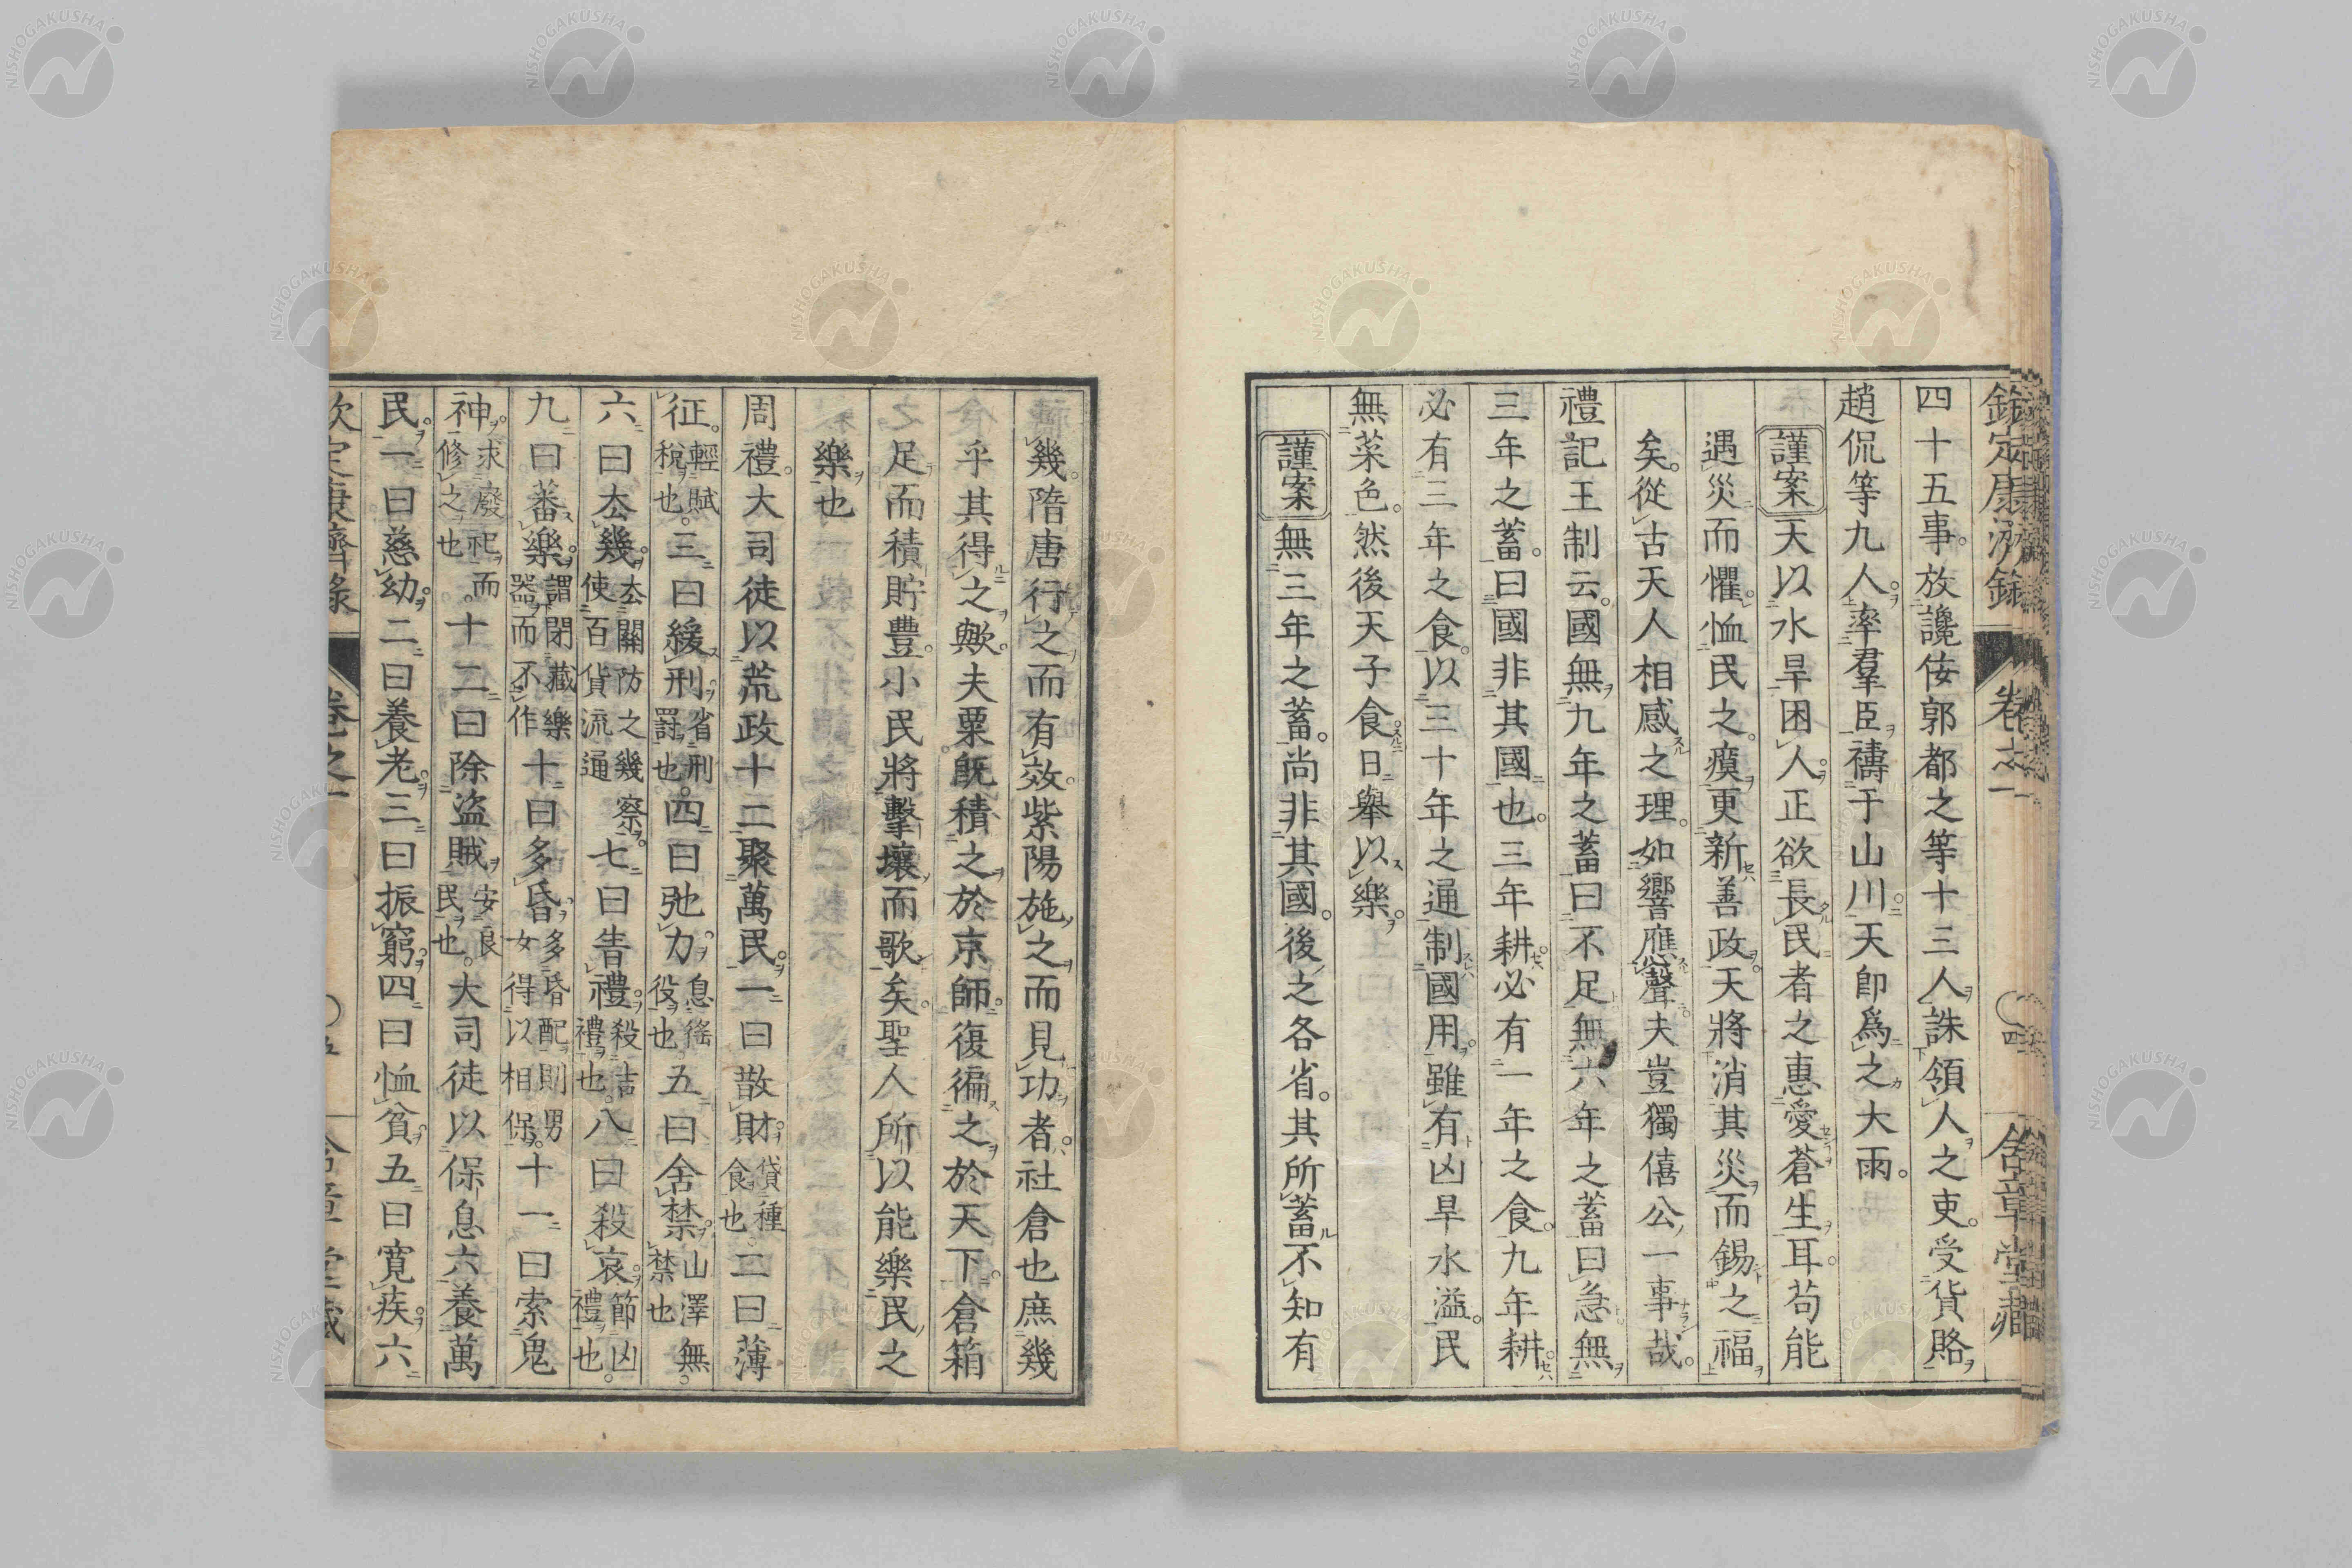 欽定康濟錄 卷之一 〇四 含章堂藏
四十五事。放讒佞郭都之等十三人。誅領人之吏。受貨賂
趙侃等九人。率羣臣禱于山川。天即爲之大雨。
謹案天以水旱困人。正欲長民者之惠愛蒼生耳。苟能
遇災而懼。恤民之瘼。更新善政。天將消其災而錫之福
矣。從古天人相感之理。如響應聲。夫豈獨僖公一事哉。
禮記王制云。國無九年之蓄曰不足。無六年之蓄曰急。無
三年之蓄。曰國非其國也。三年耕。必有一年之食。九年耕。
必有三年之食。以三十年之通制國用。雖有凶旱水溢。民
無菜色。然後天子食。日舉以樂。
謹案無三年之蓄。尚非其國。後之各省。其所蓄不知有
幾。隋唐行之而有效。紫陽施之而見功者。社倉也庶幾
乎其得之歟。夫粟既積之於京師。復徧之於天下。倉箱
足而積貯豐。小民將擊壤而歌矣。聖人所以能樂民之
樂也
周禮。大司徒以荒政十二聚萬民。一曰散財。貸種食也二曰薄
征。輕賦稅也。三曰緩刑。省刑罰也。四曰弛力。息徭役也五曰舍禁。山澤無禁也
六曰去幾。去關防之幾察使百貨流通七曰眚禮。殺吉禮也。八曰殺哀。節凶禮也。
九曰蕃樂。謂閉藏樂器而不作十曰多昏。多昏配則男女得以相保。十一曰索鬼
神。求廢祀而修之也。十二曰除盜賊。安良民也。大司徒以保息六養萬
民。一曰慈幼。二曰養老。三曰振窮。四曰恤貧。五曰寬疾。六
欽定康濟錄 卷之一 〇五 含章堂藏